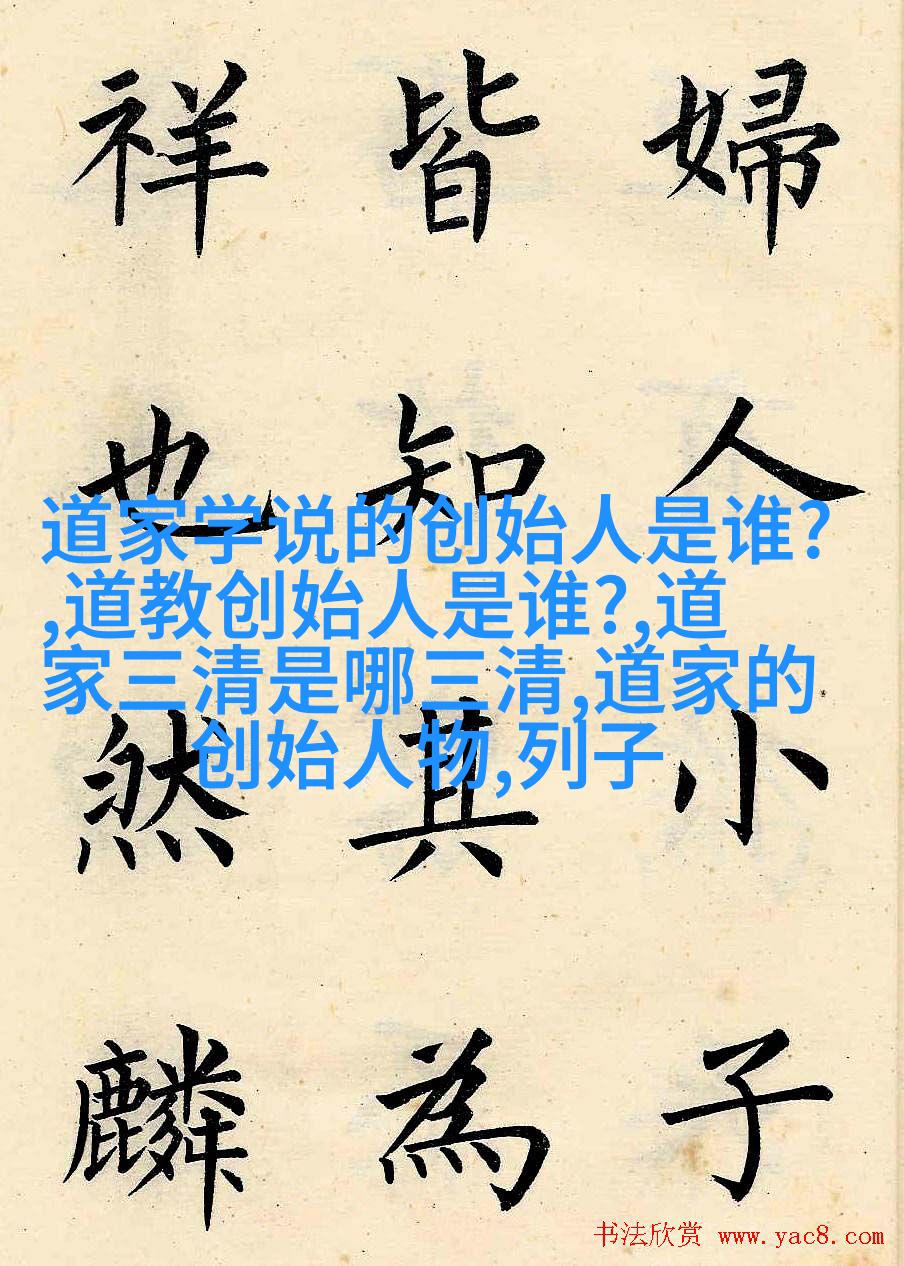 婦人小子
皆知其為
祥也然麟
道家学说的创始人是谁?
,道教创始人是谁?,道
家三清是哪三清,道家的
创始人物,列子
书法欣赏 www.yac8.com